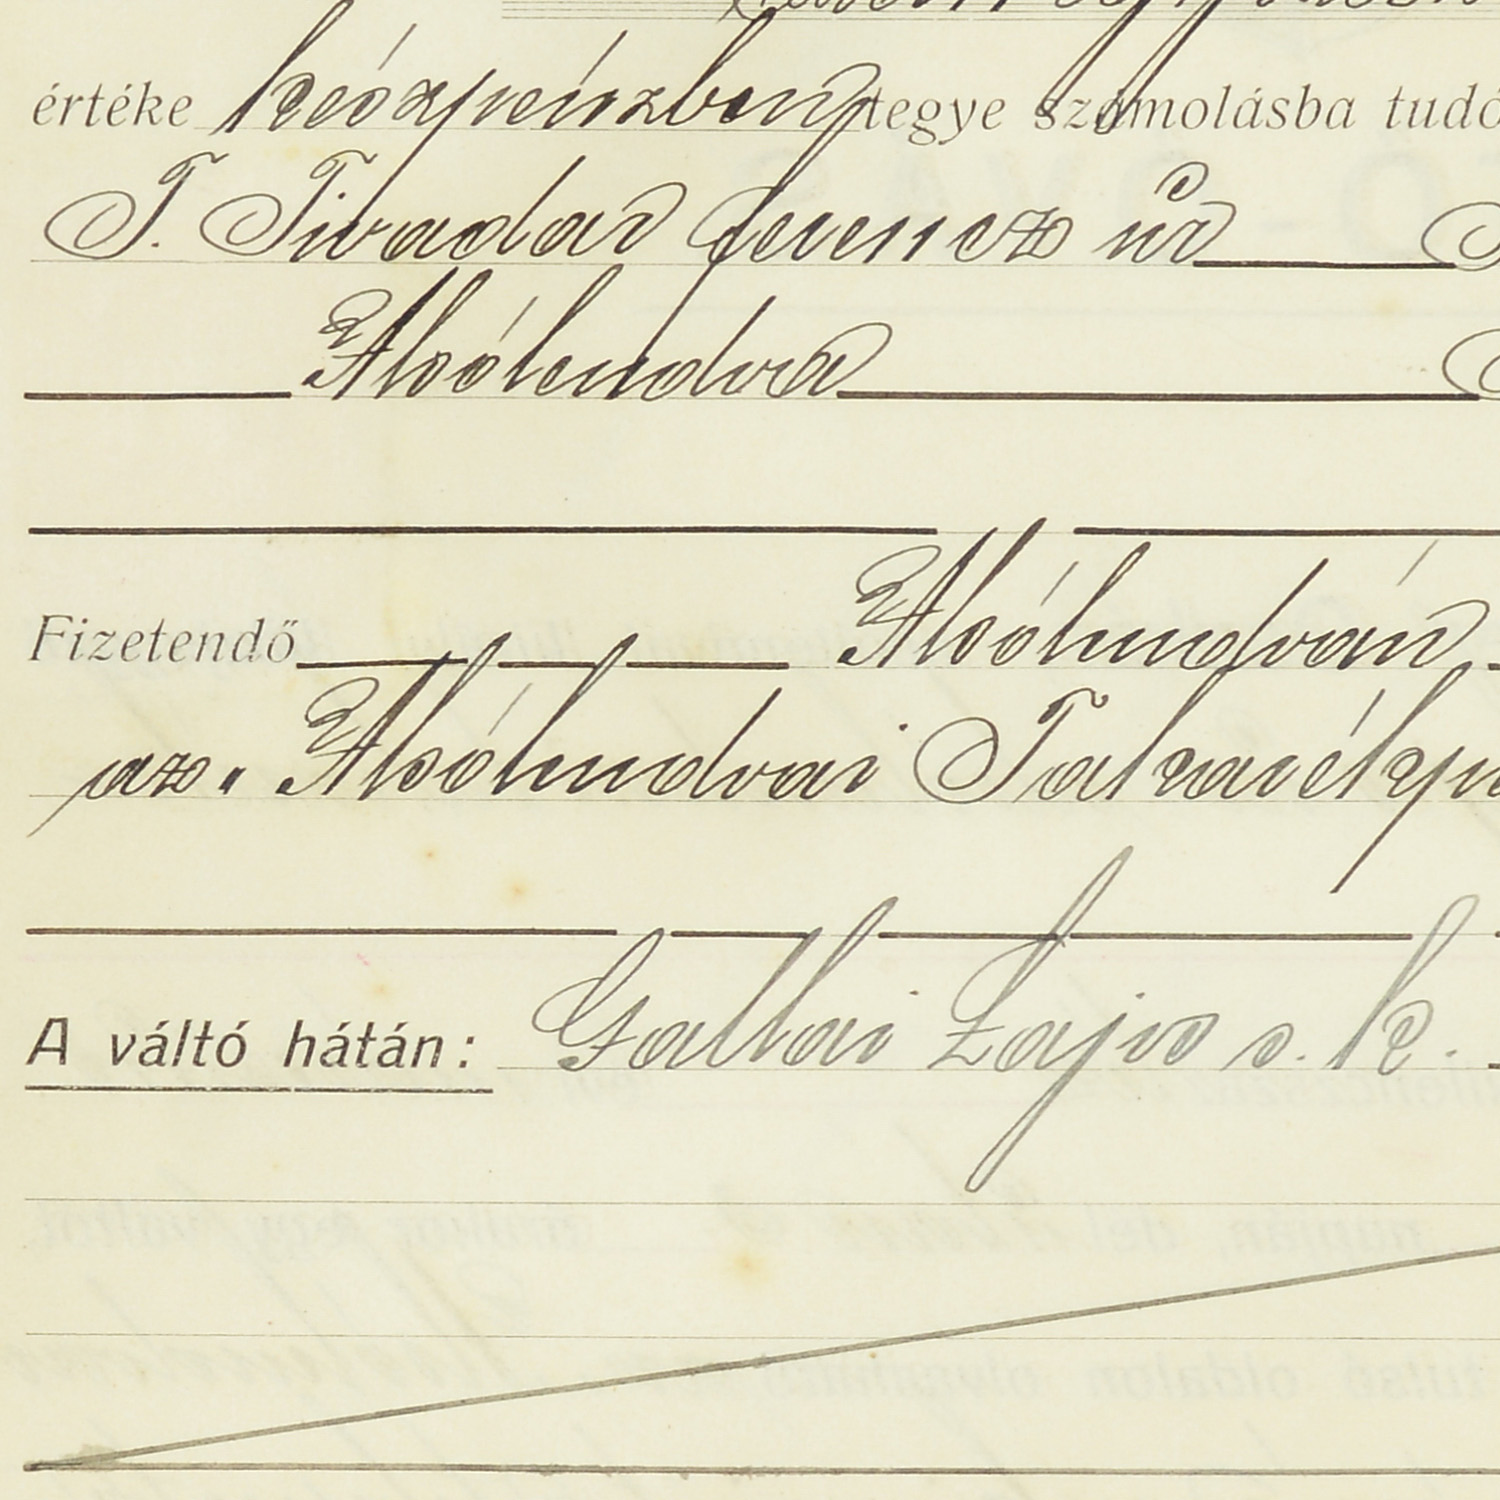 értéke készpénzben tegye számolásba tudó
T. Tivadar Ferencz úr
Alsólendva
Fizetendő Alsólendván
az Alsólendvai Takarékp
A váltó hátán: Gallai Lajos s. k.